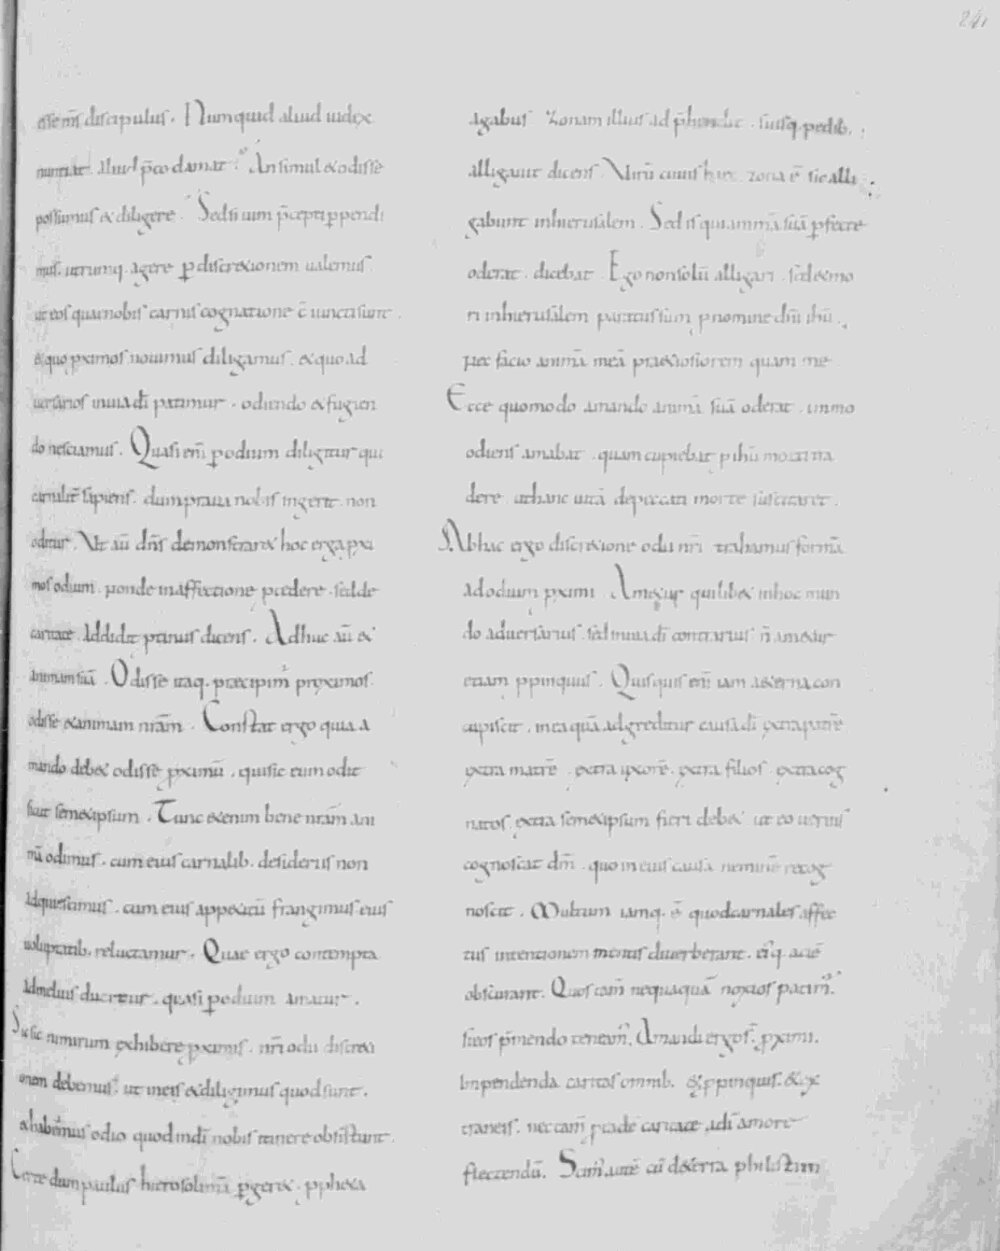 241
esse m̄s discipulus. Numquid aliud iudex
nuntiat aliud p̄co damat. An simul & odisse
possumus & diligere. Sed si uim p̄cepti ꝑpendi
mus. utrumq. agere ꝑ discr&ionem ualemus.
ut eos qui nobis carnis cognatione c̄iuncti sunt.
& quos pximos nouimus diligamus. & quos ad
uersarios in uia dī patimur. odiendo & fugien
do nesciamus. Quasi enī ꝑ odium diligitur qui
carnalit̄ sapiens. dum praua nobis ingerit non
auditur. Ut aū dn̄s demonstrar& hoc erga pxi
mos odium. non de inaffectione pcedere. sed de
caritate. Addidit ptinus dicens. Adhuc aū &
animam suā. Odisse itaq. praecipim̄ proximos.
odisse & animam nrām. Constat ergo quia a
mando deb& odisse pximū. qui sic eum odit
sicut sem&ipsum. Tunc &enim bene nrām ani
mā odimus. cum eius carnalib. desideriis non
adquiescimus. cum eius appetitū frangimus eius
uoluptatib. reluctamur. Quae ergo contempta
ad melius ducitur. quasi ꝑ odium amatur.
Sic sic nimirum exhibere pximis. nrī odii discreti
onem debemus. ut in eis & diligamus quod sunt.
& habeamus odio quod in dī nobis itinere obsistunt.
Certe dum paulus hierosolimā ꝑger&. pph&a
agabus zonam illius adp̄hendit. suisq. pedib.
alligauit dicens. Virū cuius haec zona ē sic alli
gabunt in hierusalem. Sed is qui animā suā ꝑfecte
oderat. dicebat. Ego non solū alligari. sed & mo
ri in hierusālem paratus sum p nomine dn̄i ih̄u.
nec facio animā meā pr&iosiorem quam me
Ecce quomodo amando animā suā oderat. immo
odiens amabat. quam cupiebat p ih̄u morti tra
dere. ut hanc uitā de peccati morte suscitaret.
Ab hac ergo discr&ione odii nrī trahamus formā
ad odium pximi. Am&ur quilib& in hoc mun
do aduersarius. sed in uia dī contrarius n̄ am&ur
etiam ppinquus. Quisquis enī iam aeterna con
cupiscit. in ea quā adgreditur causā dī extra patrē
extra matrē. extra uxorē. extra filios. extra cog
natos. extra sem&ipsum fieri deb&. ut eo uerius
cognoscat dm̄. quo in eius causa neminē recog
noscit. Multum iamq. ē quod carnales affec
tus intentionem mentis diuerberant. ei'q. aciē
obscurant. Quos tam̄ nequaquā noxios patim̄.
si eos p̄mendo tenem̄. Amandi ergo s̄. pximi.
Inpendenda caritas omnib. & ppinquis. & ex
traneis. nec tam̄ p eadē caritate a dī amore
flectendū. Scim̄ autē cū de terra philistim